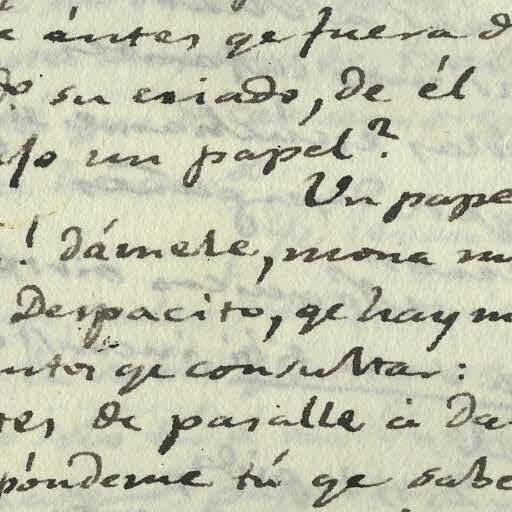 ántes qe fuera d
do su criado, de él
un papel?
Un pape
! dámele, mona m
Despacito, qe hay m
qe consultar:
tes de pasalle á da
póndeme tú qe sabe